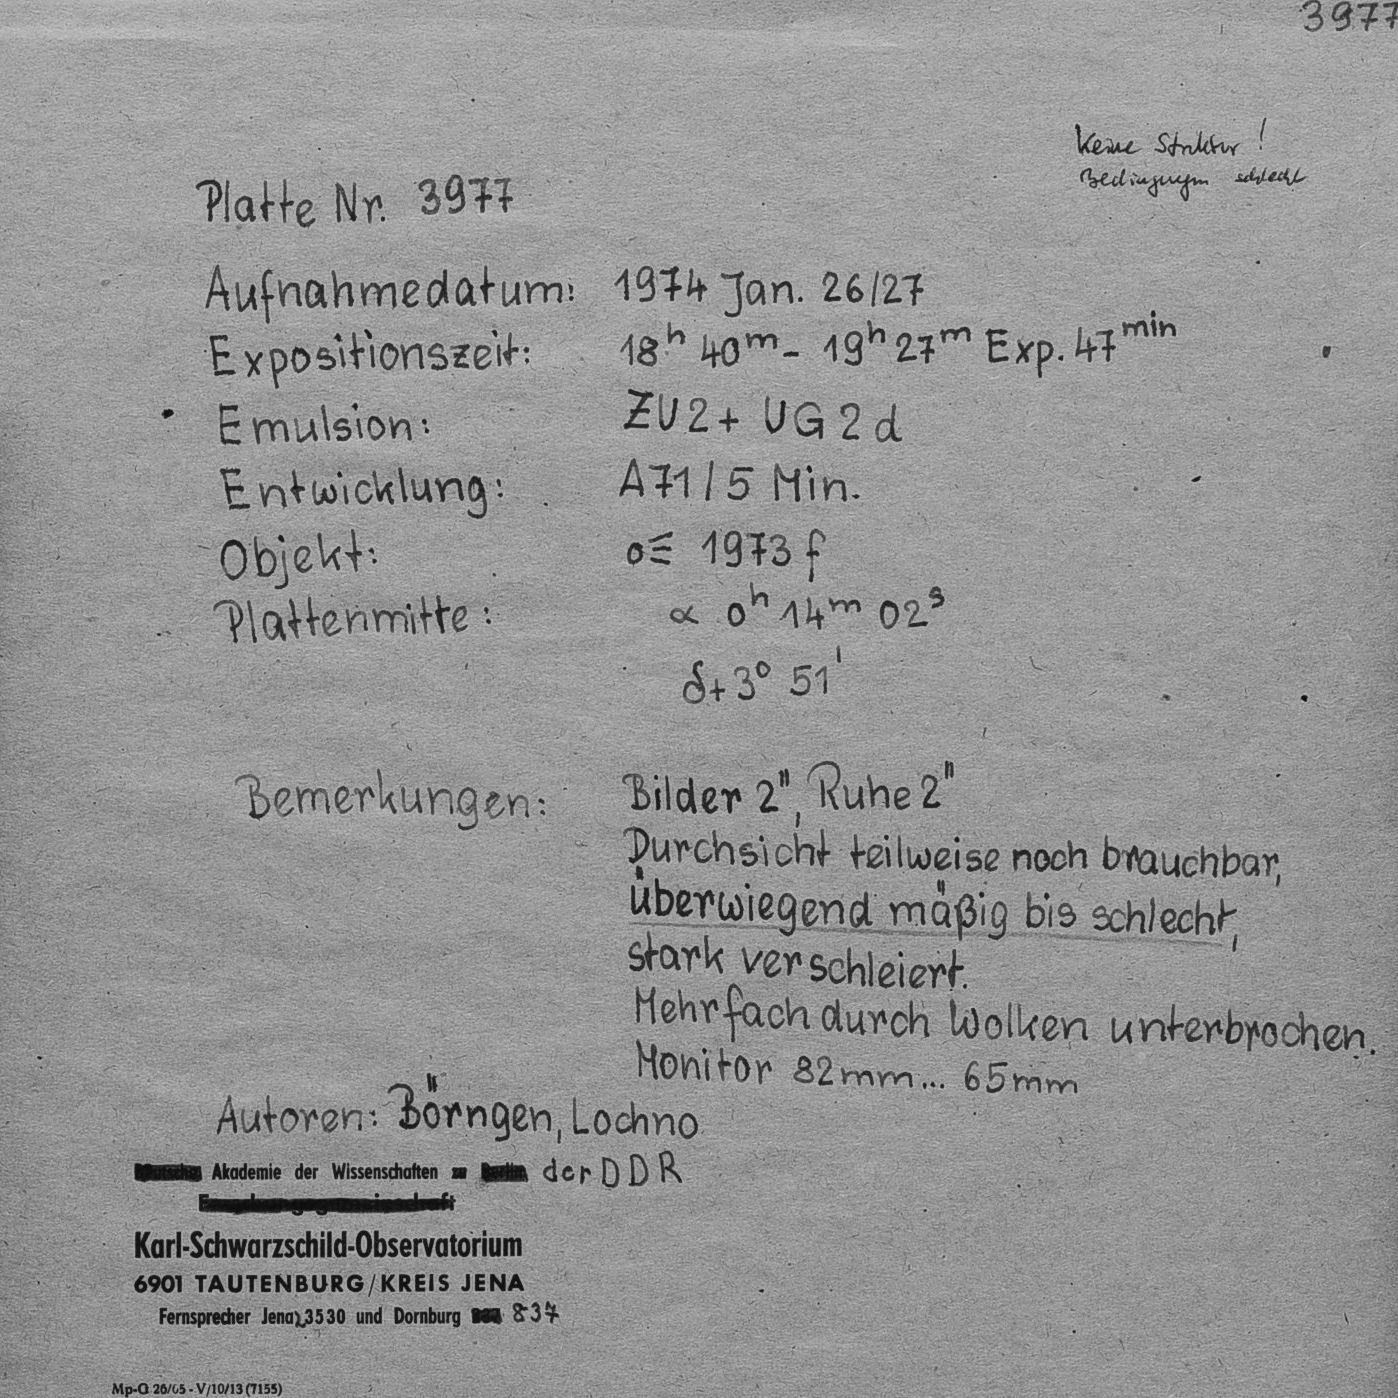 3977
Keine Struktur!
Bedingungen schlecht
Platte Nr. 3977
Aufnahmedatum: 1974 Jan. 26/27
Expositionszeit: 18h 40m - 19h 27m Exp. 47min
Emulsion: ZU2 + UG2d
Entwicklung: A71/5 Min.
Objekt: 1973 f
Plattenmitte: α 0h 14m 02s
δ+3° 51'
Bemerkungen: Bilder 2", Ruhe 2"
Durchsicht teilweise noch brauchbar,
überwiegend mäßig bis schlecht,
stark verschleiert.
Mehrfach durch Wolken unterbrochen.
Monitor 82mm... 65mm
Autoren: Börngen, Lochno
Akademie der Wissenschaften der DDR
Karl-Schwarzschild-Observatorium
6901 TAUTENBURG/KREIS JENA
Fernsprecher Jena 3530 und Dornburg 837
Mp-G 26/65 - V/10/13 (7155)